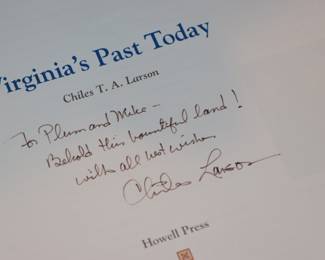 Virginia's Past Today
Chiles T. A. Larson
To Plum and Mike –
Behold this bountiful land!
with all best wishes
Chiles Larson
Howell Press